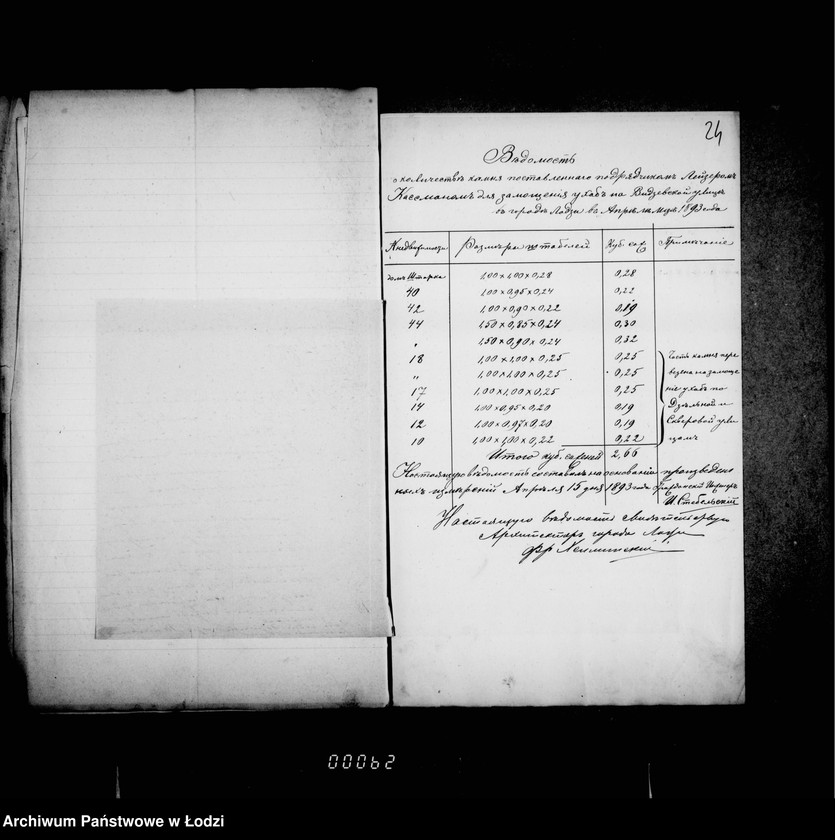 24
Вѣдомость
о количествѣ камня поставленнаго подрядчикомъ Лейзеромъ
Кассманомъ для замощенія ухабъ на Видзевской улицѣ
въ городѣ Лодзи въ Апрѣлѣ мѣс. 1893 года
№ недвижимости Размѣры штабелей Куб. саж. Примѣчаніе
домъ Шторка 1,00 × 1,00 × 0,28 0,28
40 1,00 × 0,95 × 0,24 0,22
42 1,00 × 0,90 × 0,22 0,19
44 1,50 × 0,85 × 0,24 0,30
" 1,50 × 0,90 × 0,24 0,32
18 1,00 × 1,00 × 0,25 0,25 Часть камня пере
" 1,00 × 1,00 × 0,25 0,25 везена на замоще
17 1,00 × 1,00 × 0,25 0,25 ніе ухабъ по
14 1,00 × 0,95 × 0,20 0,19 Дзѣльной и
12 1,00 × 0,97 × 0,20 0,19 Скверовой ули
10 1,00 × 1,00 × 0,22 0,22 цамъ
Итого куб. саженей 2,66
Настоящую вѣдомость составилъ на основаніи произведен
ныхъ измѣреній Апрѣля 15 дня 1893 года Гражданскій Инженеръ
И. Стебельскій
Настоящую вѣдомость свидѣтельствую
Архитекторъ города Лодзи
Фр
00062
Archiwum Państwowe w Łodzi